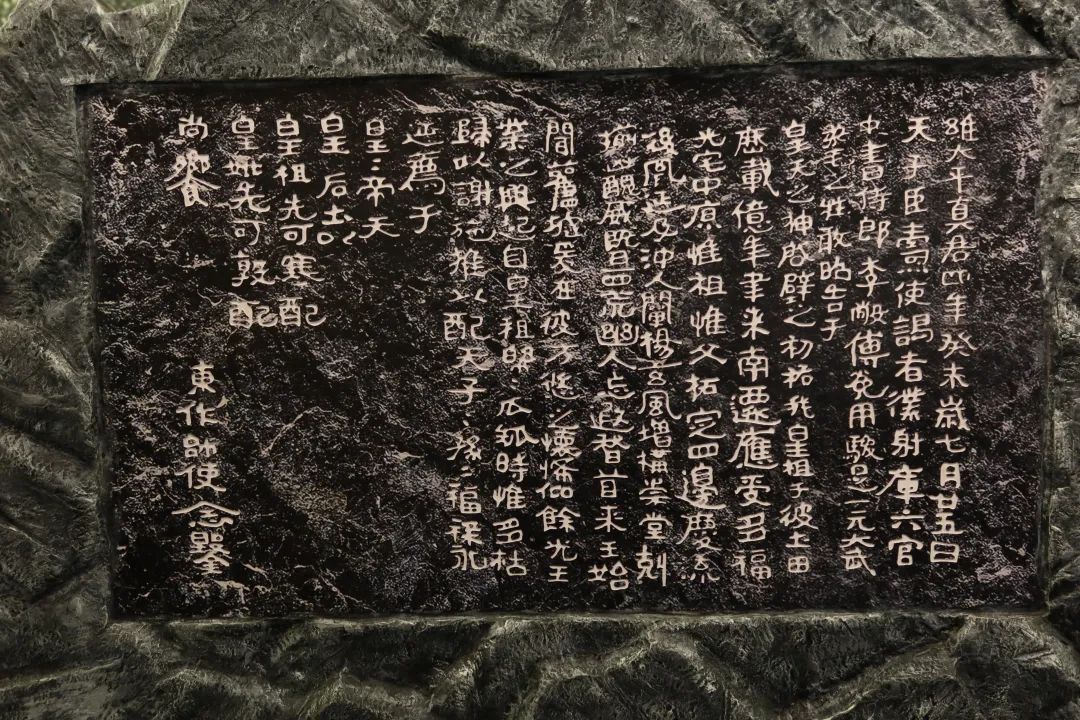 維太平真君四年癸未歲七月廿五日
天子臣燾使謁者僕射庫六官
中書侍郎李敞傅㝹用駿足一元大武
柔毛之牲敢昭告于
皇天之神啟辟之初祐我皇祖于彼土田
歷載億年聿來南遷應受多福
光宅中原惟祖惟父拓定四邊慶流
後胤延及沖人闡楊玄風增構崇堂剋
揃凶醜威暨四荒幽人忘遐稽首來王始
聞舊墟爰在彼方悠〻之懷希仰餘光王
業之興起自皇祖綿〻瓜瓞時惟多祜
歸以謝施推以配天子〻孫〻福祿永
延薦于
皇〻帝天
皇〻后土以
皇祖先可寒配
皇妣先可敦配
尚饗
東作帥使念鑿